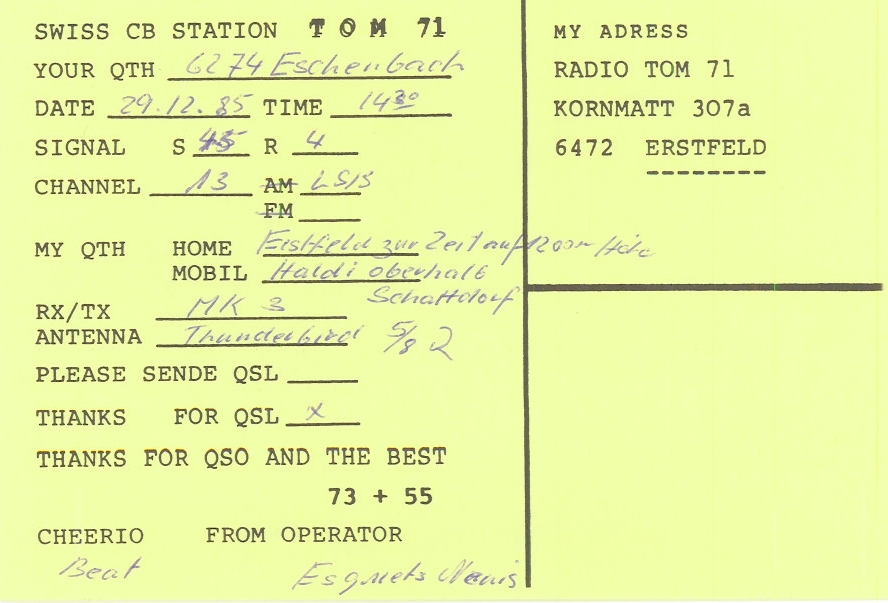 SWISS CB STATION TOM 71
YOUR QTH 6274 Eschenbach
DATE 29.12.85 TIME 14 30
SIGNAL S 5 R 4
CHANNEL 13 AM LSB
FM
MY QTH HOME Erstfeld zur Zeit auf 1200m Höhe
MOBIL Haldi oberhalb
Schattdorf
RX/TX MK 3
ANTENNA Thunderbird 5/8 λ
PLEASE SENDE QSL
THANKS FOR QSL X
THANKS FOR QSO AND THE BEST
73 + 55
CHEERIO FROM OPERATOR
Beat
MY ADRESS
RADIO TOM 71
KORNMATT 307a
6472 ERSTFELD